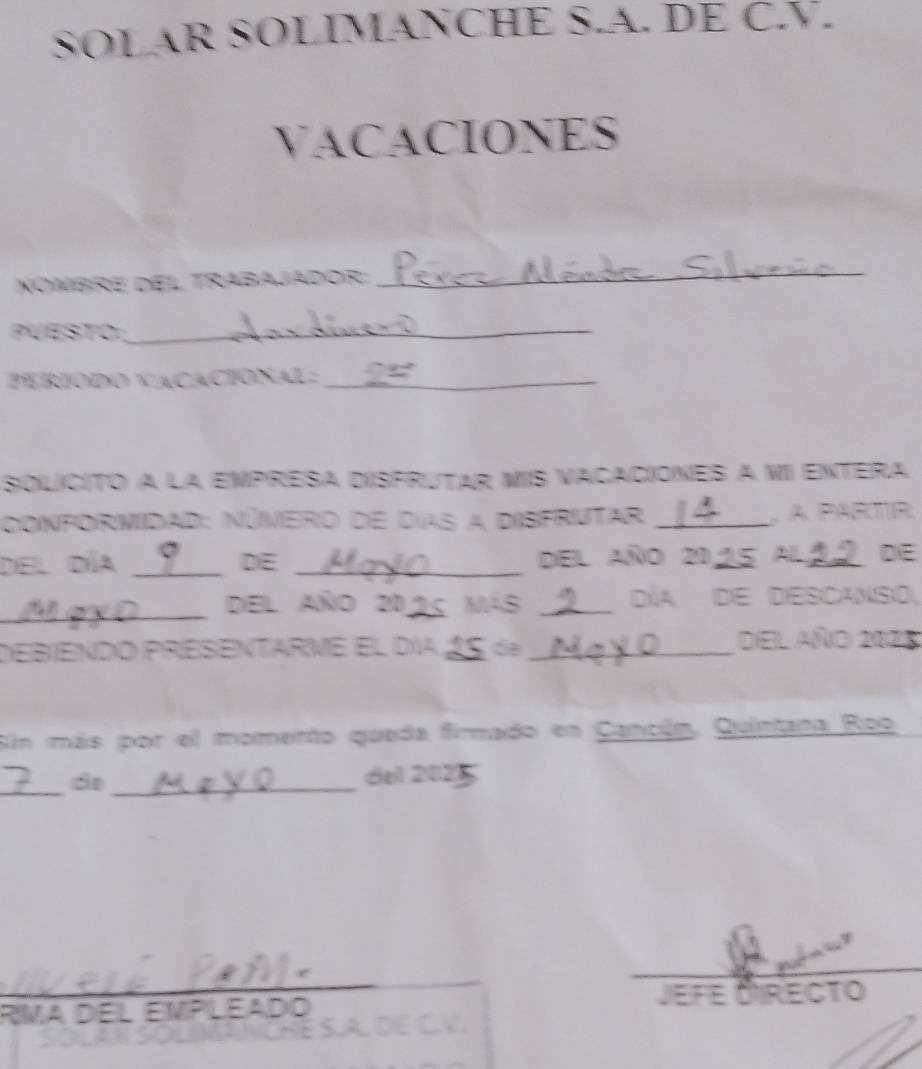 SOLAR SOLIMANCHE S.A. DE C.V.
VACACIONES
NOMBRE DEL TRABAJADOR: Pérez Méndez Silverio
PUESTO: Jardinero
PERIODO VACACIONAL: 2do
SOLICITO A LA EMPRESA DISFRUTAR MIS VACACIONES A MI ENTERA
CONFORMIDAD: NÚMERO DE DIAS A DISFRUTAR 14, A PARTIR
DEL DÍA 9 DE Mayo DEL AÑO 2025 AL 22 DE
Mayo DEL AÑO 2025 MÁS 2 DÍA DE DESCANSO,
DEBIENDO PRESENTARME EL DIA 25 de Mayo DEL AÑO 2025
Sin más por el momento queda firmado en Cancún, Quintana Roo
7 de Mayo del 2025
JEFE DIRECTO
RMA DEL EMPLEADO
SOLAR SOLIMANCHE S.A. DE C.V.